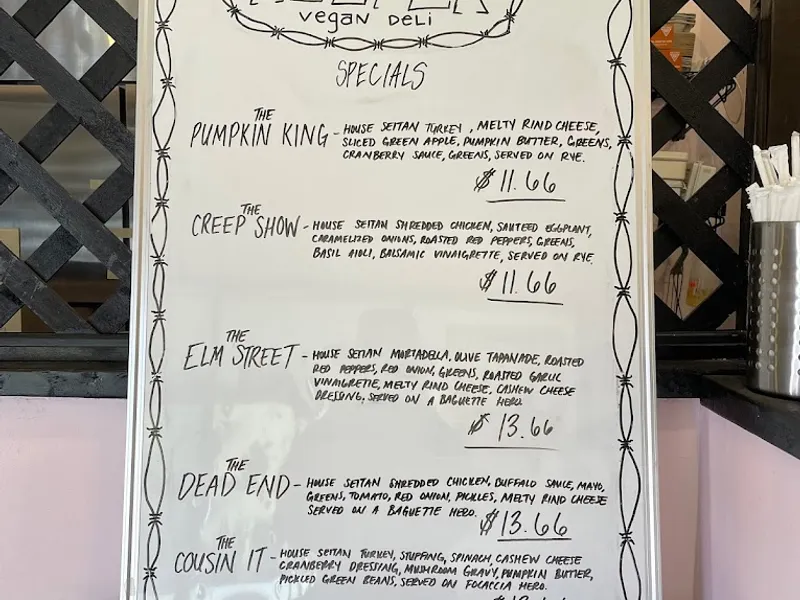 VEGAN DELI
SPECIALS
THE
PUMPKIN KING - HOUSE SEITAN TURKEY, MELTY RIND CHEESE,
SLICED GREEN APPLE, PUMPKIN BUTTER, GREENS,
CRANBERRY SAUCE, GREENS, SERVED ON RYE.
$11.66
THE
CREEP SHOW - HOUSE SEITAN SHREDDED CHICKEN, SAUTEED EGGPLANT,
CARAMELIZED ONIONS, ROASTED RED PEPPERS, GREENS,
BASIL AIOLI, BALSAMIC VINAIGRETTE, SERVED ON RYE.
$11.66
THE
ELM STREET - HOUSE SEITAN MORTADELLA, OLIVE TAPANADE, ROASTED
RED PEPPERS, RED ONION, GREENS, ROASTED GARLIC
VINAIGRETTE, MELTY RIND CHEESE, CASHEW CHEESE
DRESSING, SERVED ON A BAGUETTE HERO.
$13.66
THE
DEAD END - HOUSE SEITAN SHREDDED CHICKEN, BUFFALO SAUCE, MAYO,
GREENS, TOMATO, RED ONION, PICKLES, MELTY RIND CHEESE
SERVED ON A BAGUETTE HERO.
$13.66
THE
COUSIN IT - HOUSE SEITAN TURKEY, STUFFING, SPINACH, CASHEW CHEESE
CRANBERRY DRESSING, MUSHROOM GRAVY, PUMPKIN BUTTER,
PICKLED GREEN BEANS, SERVED ON FOCACCIA HERO.